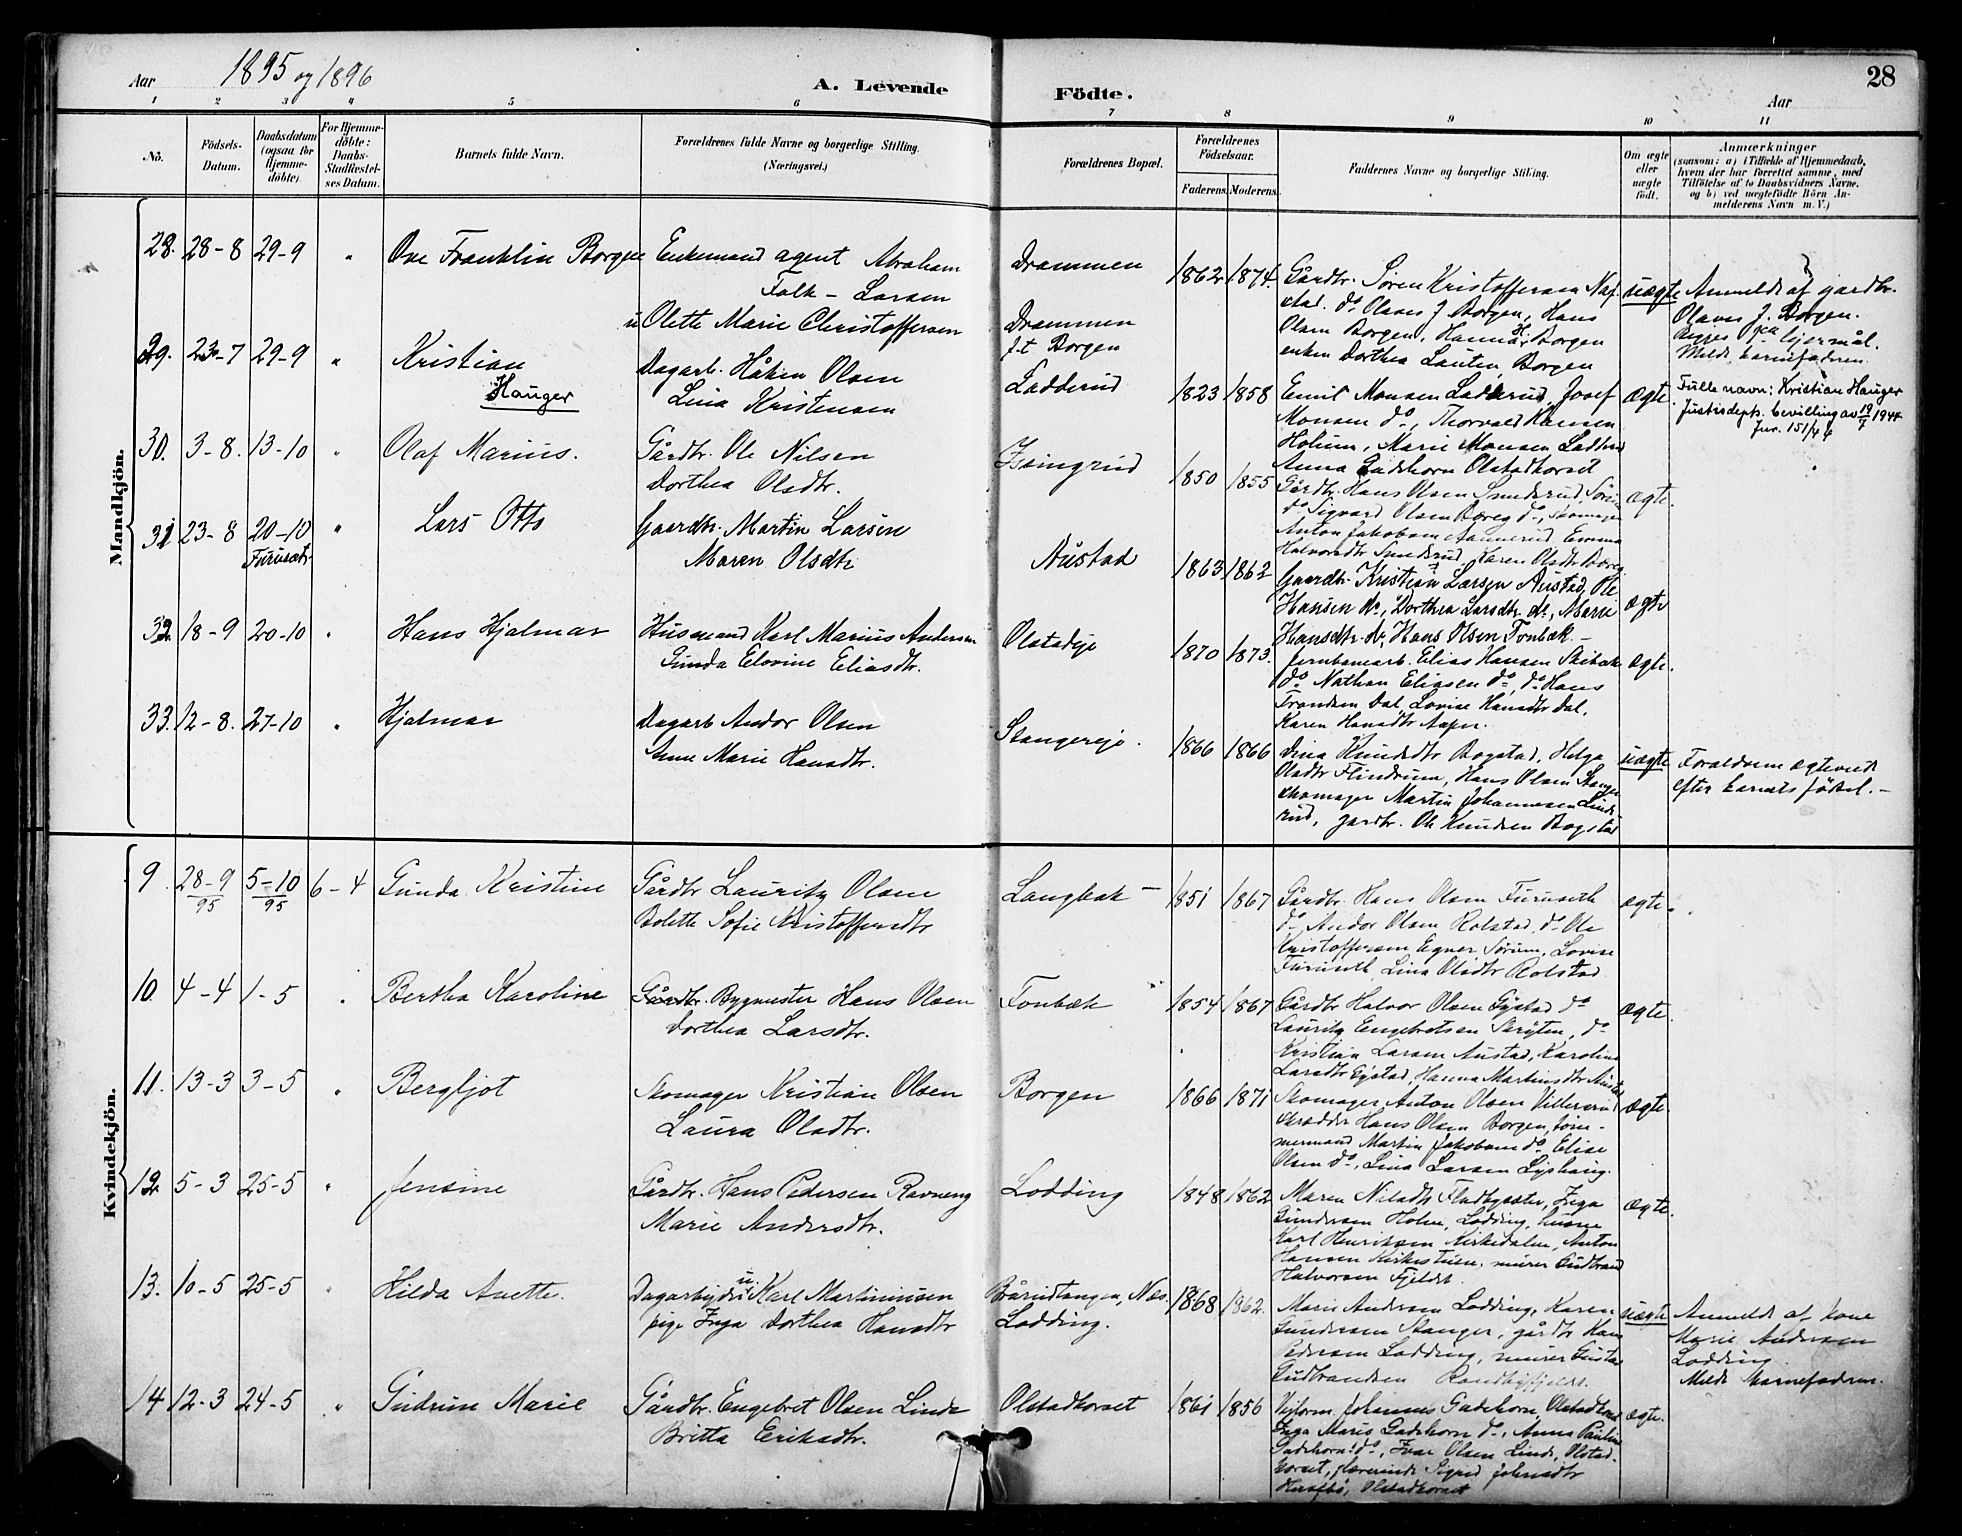 Aar 1895 og 1896
A. Levende Födte.
Aar
28
1 2 3 4 5 6 7 8 9 10 11
No.
Födsels-Datum.
Daabsdatum (ogsaa for Hjemmedöbte).
For Hjemmedöbte: Daabs-Stadfæstelses Datum.
Barnets fulde Navn.
Forældrenes fulde Navne og borgerlige Stilling. (Næringsvei.)
Forældrenes Bopæl.
Forældrenes Födselsaar.
Faderens. Moderens.
Faddernes Navne og borgerlige Stilling.
Om ægte eller uægte födt.
Anmærkninger
(saasom: a) i Tilfælde af Hjemmedaab, hvem der har forrettet samme, med Tilföielse af to Daabsvidners Navne, og b) ved uægtefödte Börn Anmelderens Navn m. V.)
Mandkjön.
28. 28-8 29-9 " Ove Franklin Borgen
Enkemand agent Abraham
Falk - Larsen
u Olette Marie Christoffersen
Drammen
Drammen
f.t Borgen
1862 1874.
Gårdbr. Sören Kristoffersen
stad. do Olaves J Borgen, Hans
Olsen Borgen, Hanna H. Borgen
enken Dorthea Lauten Borgen
uægte
Anmeldt af gardbr.
Olaves J. Borgen.
lejermål.
Meldt barnefaderen.
29. 23-7 29-9 " Kristian
Hauger
Dagarb. Håken Olsen
Lina Kristensen
Ladderud
1823 1858
Emil Monsen Ladderud, Josef
Monsen do, Thorvald Hansen
Holum, Marie Monsen Ladderud
Anna Gadshorn Olstadkorset
ægte
Fulle navn: Kristian Hauger
Justisdepts. bevilling av 19/7 1944
Jnr. 151/44
30. 3-8. 13-10 " Olaf Marius.
Gårdbr. Ole Nilsen
Dorthea Olsdtr.
1850 1855
Gårdbr. Hans Olsen Smedsrud,
do Sigvard Olsen Bæreg do, skomager
Anton Jakobsen Emma
Halvorsdtr Smedsrud, Karen Olsdtr Bæreg
ægte.
31 23-8 20-10 " Lars Otto
Furuset.
Gaardbr. Martin Larsen
Maren Olsdtr
Austad
1863 1862
Gaardbr. Kristian Larsen Austad, Ole
Hansen do, Dorthea Larsdtr. do, Marie
Hansdtr. do, Hans Olsen Tonbæk. -
ægte
32 18-9 20-10 " Hans Hjalmar
Husmand Karl Marius Andersen
Gunda Elovine Eliasdtr.
Olstadeje
1870 1873.
Jernbanearb. Elias Hansen Skibæk
do Nathan Eliasen do, do Hans
Trondsen Dal, Lovise Hansdtr Dal,
Karen Hansdtr Asper.
ægte.
33. 12-8. 27-10 " Hjalmar
Dagarb Andor Olsen
Anne Marie Hansdtr.
Stangereje.
1866 1866
Dina Knudsdtr Bogstad, Helga
Olsdtr Flindrum, Hans Olsen Stanger
skomager Martin Johannesen Linde-
rud, gardbr. Ole Knudsen Bogstad
uægte
Forældrene ægteviet
efter barnets födsel. -
Kvindekjön.
9. 28-9/95 5-10/95 6-4 Gunda Kristine
Gårdbr Lauritz Olsen
Bolette Sofie Kristoffersdtr
Langbak -
1851 1867
Gårdbr. Hans Olsen Furuseth
do Andor Olsen Rolstad, do Ole
Kristoffersen Egner, Sörum, Lovise
Furuseth, Lina Olsdtr Rolstad
ægte.
10. 4-4 1-5 " Bertha Karoline
Gårdbr. Bygmester Hans Olsen
Dorthea Larsdtr.
Tonbæk
1854 1867
Gårdbr Halvor Olsen Gystad do
Lauritz Engebretsen Skryten, do
Kristian Larsen Austad, Karoline
Larsdtr Gystad, Hanna Martinsdtr Austad
ægte.
11. 13-3 3-5 " Bergljot
Skomager Kristian Olsen
Laura Olsdtr.
Borgen
1866 1871
Skomager Anton Olsen
skrædder Hans Olsen Borgen, töm-
mermand Martin Jakobsen do, Elise
Olsen do, Lina Larsen Lyshaug.
ægte.
12 5-3 25-5 " Jensine
Gårdbr. Hans Pedersen Ravneng
Marie Andersdtr.
Lodding
1848 1862
Maren Nilsdtr Fladbyseter, Inga
Gundersen Holm, Lodding,
Karl Henriksen Kirkedalen, Anton
Hansen Kirkestuen, murer Gudbrand
Halvorsen Fjeldst.
ægte.
13. 10-5 25-5 " Hilda Anette.
Dagarbejder u. Karl Martiniusen
pige Inga Dorthea Hansdtr
Bårudtangen, Næs.
Lodding.
1868 1862.
Marie Andersen Lodding, Karen
Gundersen Stanger, gårdbr Hans
Pedersen Lodding, murer Gustav
Gudbrandsen
uægte
Anmeldt af kone
Marie Andersen
Lodding.
Meldt barnefaderen.
14 12-3 24-5 " Gudrun Marie
Gårdbr. Engebret Olsen Linde
Britta Eriksdtr.
Olstadkorset
1861 1856
Johannes Gadshorn, Olstadkorset
Inga Marie Gadshorn do, Anna Pauline
Gadshorn do, Ivar Olsen Linde, Olstad-
korset, lærerinde Sigrid Johnsdtr
Olstadkorset
ægte.